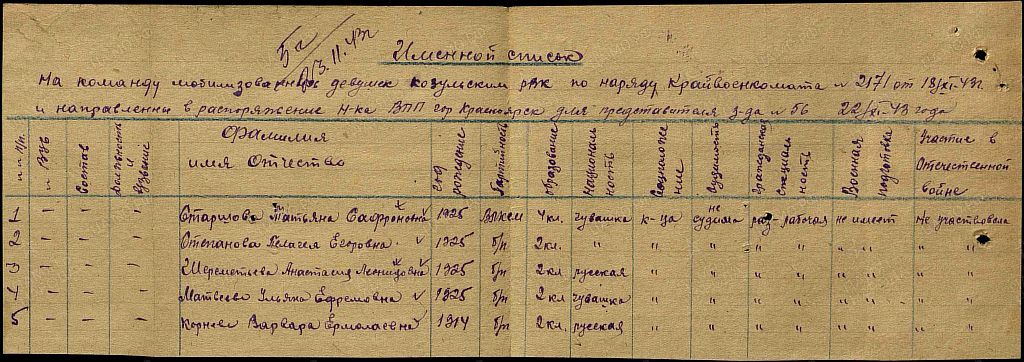 23.11.43г
Именной список
На команду мобилизованных девушек козульским рвк по наряду Крайвоенкомата N 2171 от 18/XI-43г.
и направленны в распоряжение н-ка ВПП гор Красноярск для представителя з-да N 56 22/XI-43 года
N п/п N ВУБ Состав Должность и звание Фамилия имя Отчество год рождение Партийность образование Националь ность Соцположе ние Судимость Гражданская специаль ность Военная подготовка Участие в Отечественной войне
1 - - - Старцова Татьяна Сафроновна 1925 ВЛКСМ 4 кл. чувашка к-ца не судима раз-рабочая не имеет Не участвовала
2 - - - Степанова Пелагея Егоровна 1925 б/п 2 кл. " " " " " " " " "
3 - - - Шереметьева Анастасия Леонидовна 1925 б/п 2 кл русская " " " " " " " "
4 - - - Матвеева Ульяна Ефремовна 1925 б/п 2 кл чувашка " " " " " " " "
5 - - - Корнеева Варвара Ермолаевна 1914 б/п 2 кл. русская " " " " " " " "